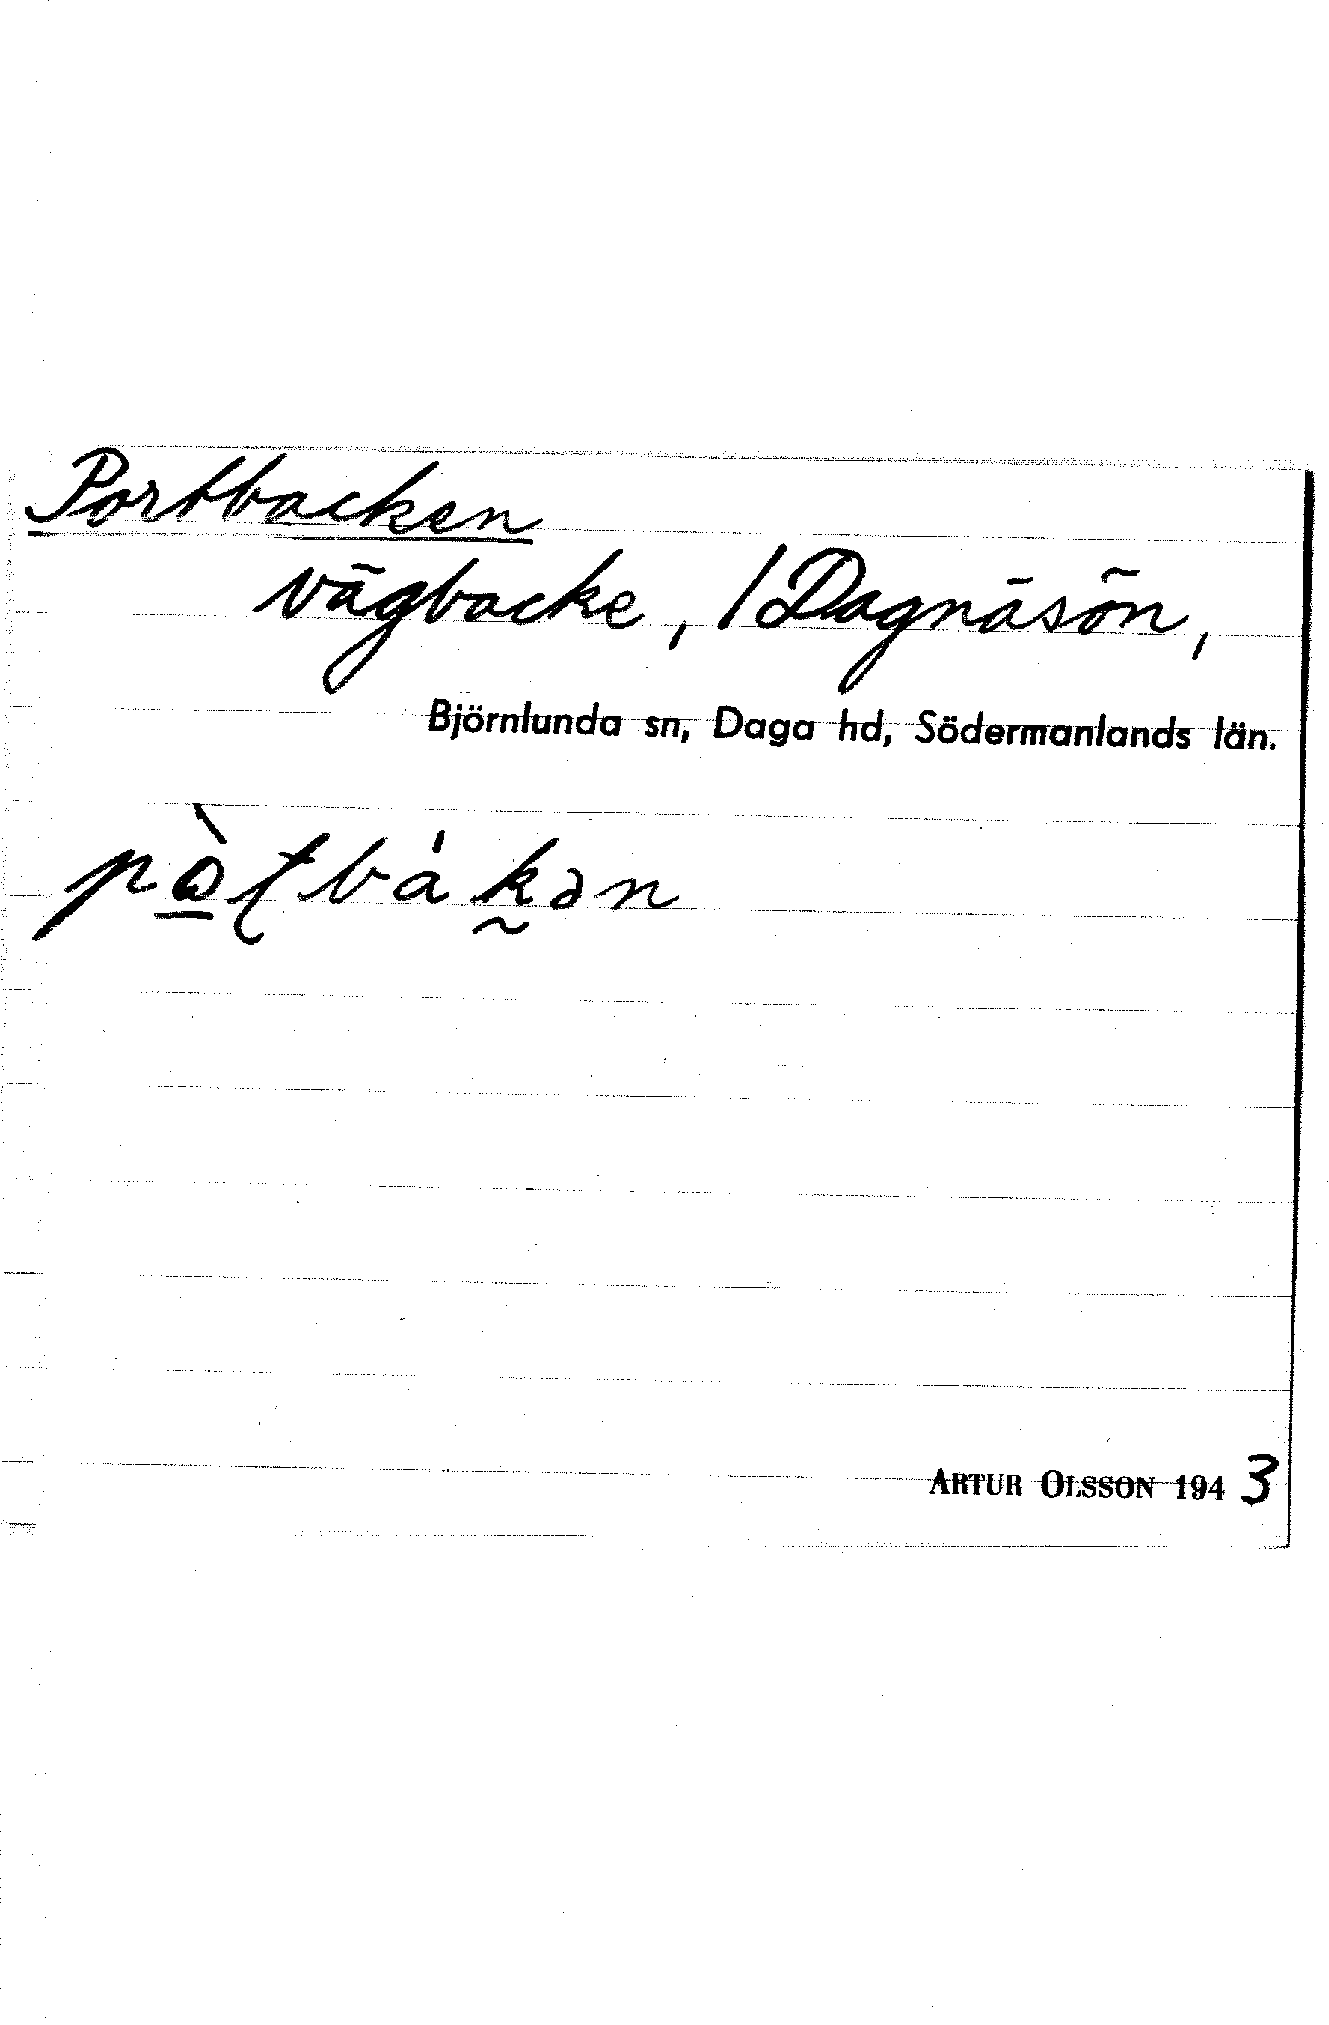 Portbacken
vägbacke, /Dagnäsön,
Björnlunda sn, Daga hd, Södermanlands län.
pò̲ʈbákən
ARTUR OLSSON 1943